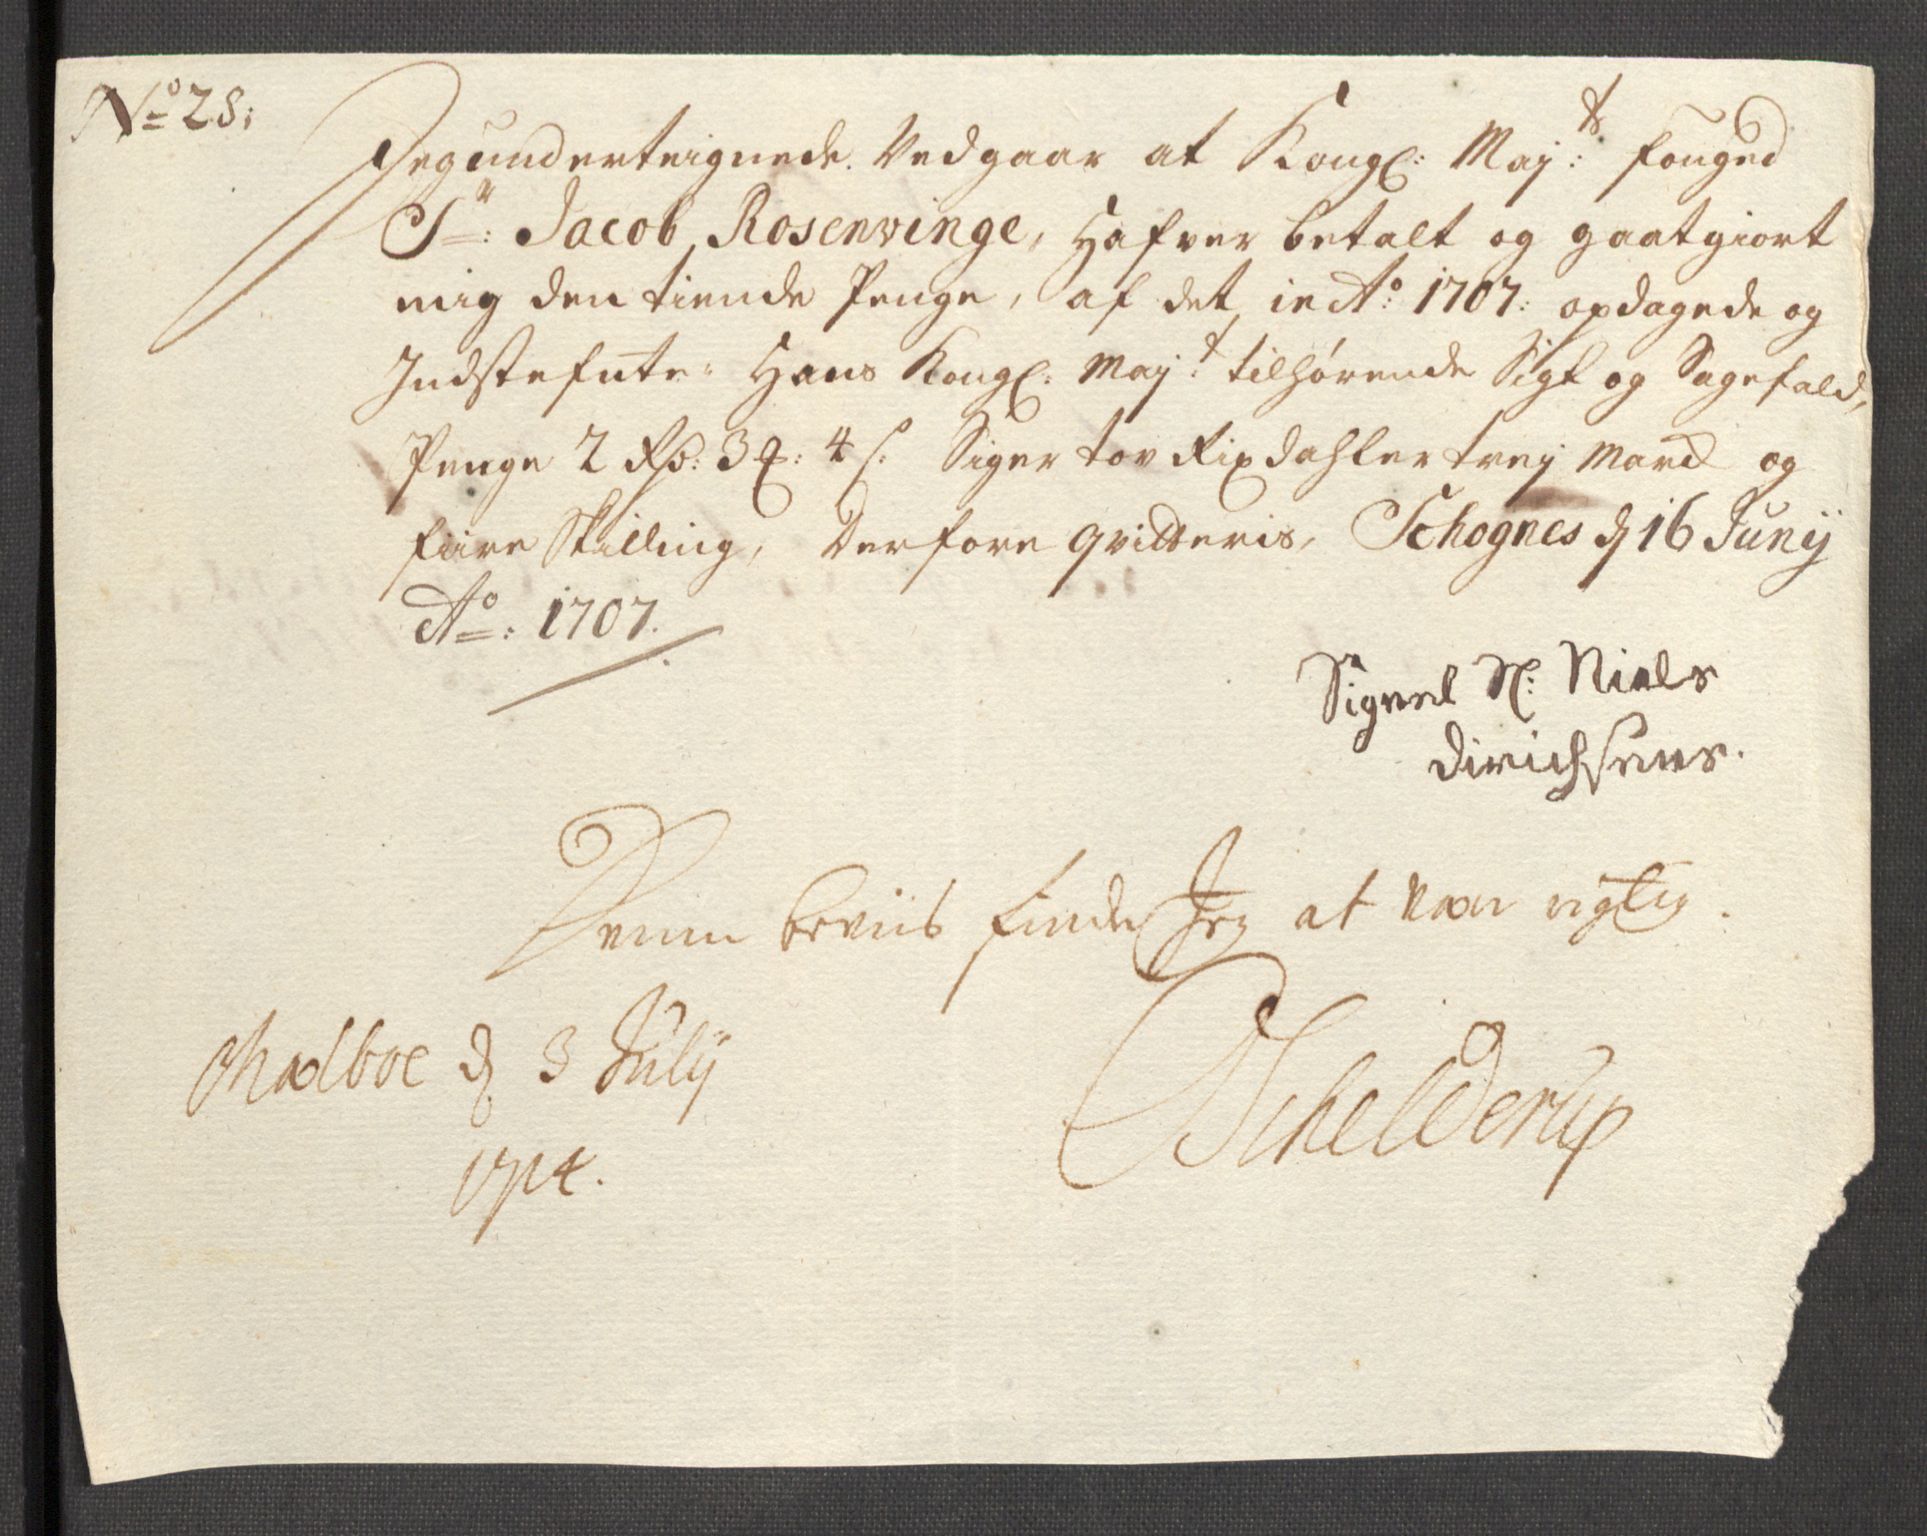 No 28:
Jeg underteignede Vedgaar at Kongl: Maj:ts fouged
Sr: Jacob Rosenvinge, Hafver betalt og gaatgiort
mig den tiende Penge, af det, in Ao: 1707: opdagede og
Indstefnte Hans Kongl: Maj:t tilhørende Sigt og Sagefald,
Penge 2 Rd: 3 ꝶ: 4 s: Siger tov Rixdahler trej Marck og
fiire Skilling, Derfore qvitteris, Schognes d 16 Junij
Ao: 1707.
Signel Sl: Niels
Dirichsens.
Denne beviis finder Jeg at være rigtig.
d 3 Julij
1714.
Schelderup